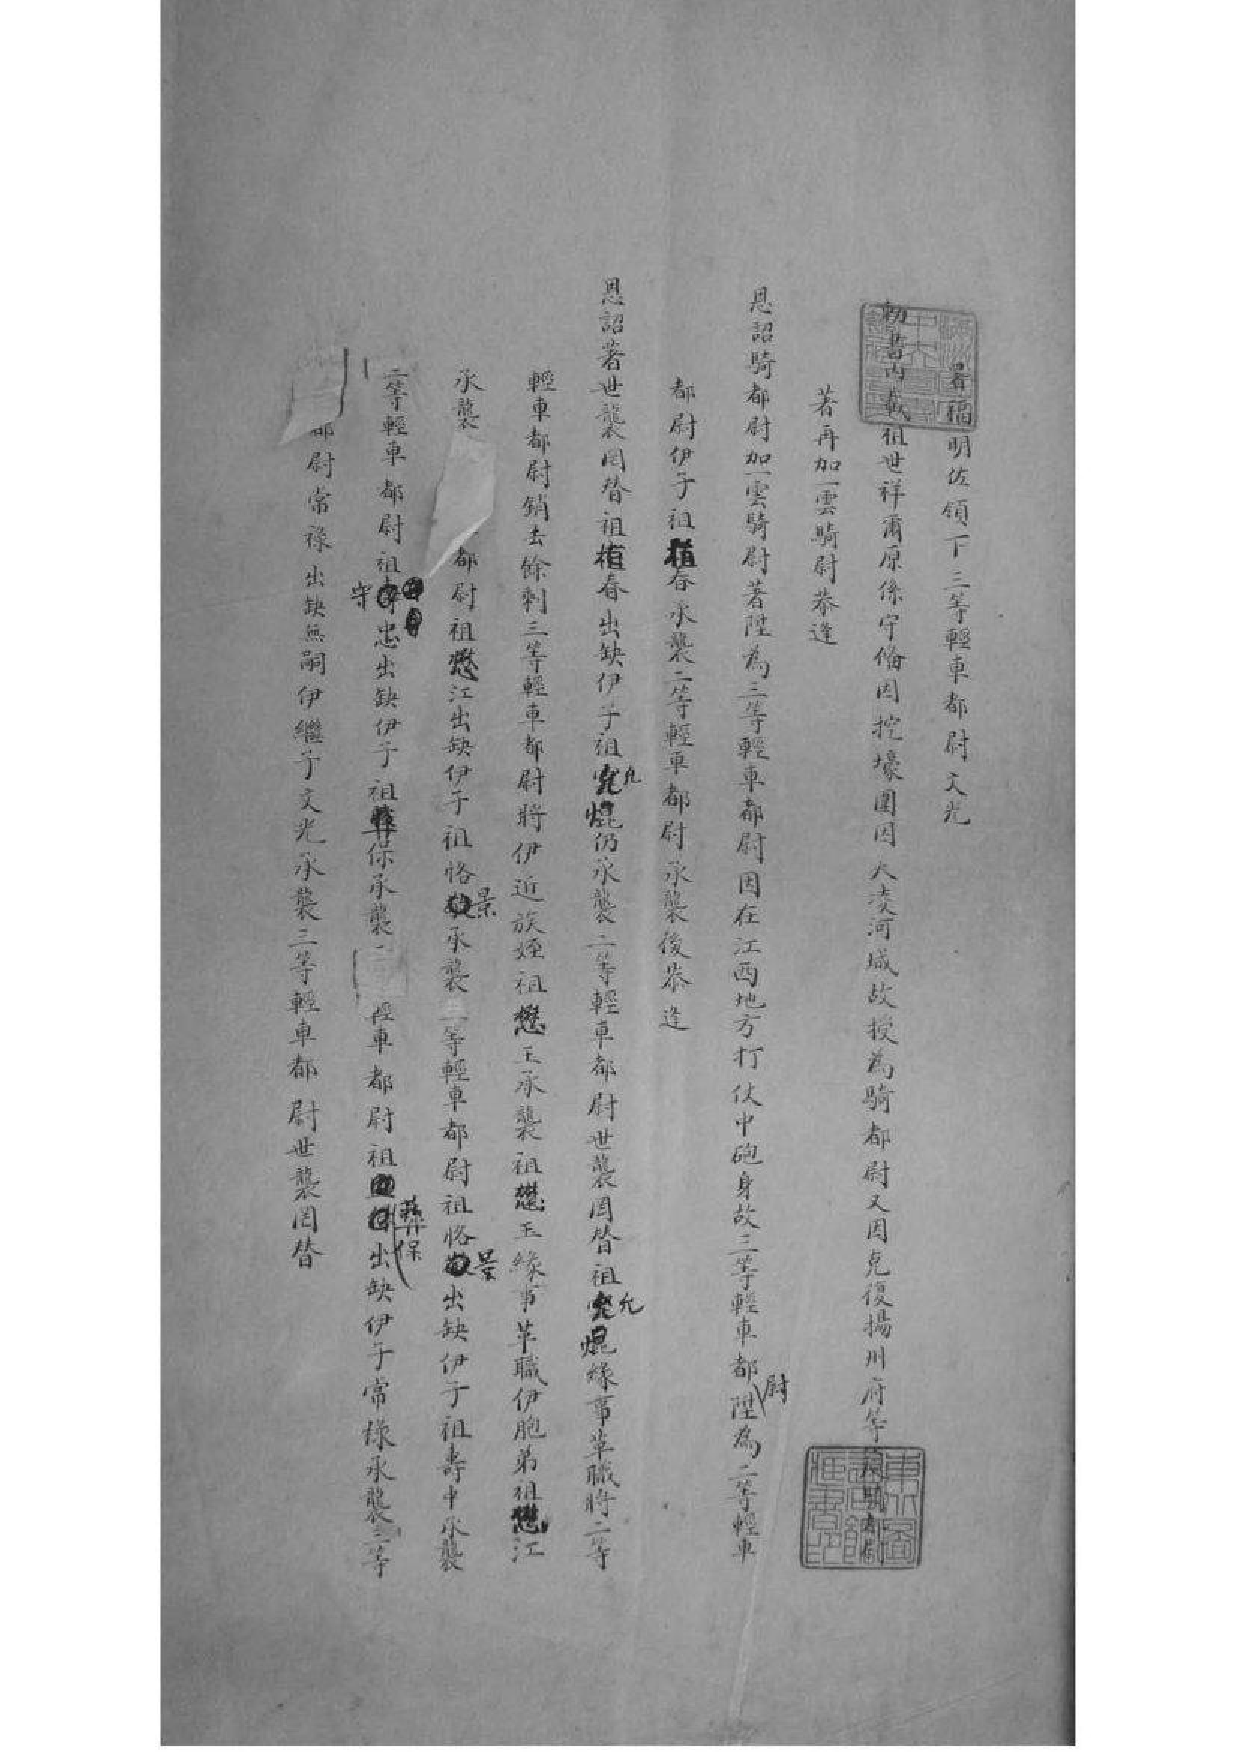 署福明佐領下三等輕車都尉文光
勅書內載祖世祥爾原係守備因挖壕圍困大淩河城故授為騎都尉又因克復揚州府等
著再加一雲騎尉恭逢
恩詔騎都尉加一雲騎尉著陞為三等輕車都尉因在江西地方打仗中砲身故三等輕車都尉陞為二等輕車
都尉伊子祖植春承襲二等輕車都尉承襲後恭逢
恩詔著世襲罔替祖植春出缺伊子祖允焜仍承襲二等輕車都尉世襲罔替祖允焜緣事革職將二等
輕車都尉銷去餘剩三等輕車都尉將伊近族姪祖懋玉承襲祖懋玉緣事革職伊胞弟祖懋江
承襲都尉祖懋江出缺伊子祖恪景承襲三等輕車都尉祖恪景出缺伊子祖壽中承襲
三等輕車都尉祖守忠出缺伊子祖彝保承襲輕車都尉祖彝保出缺伊子常祿承襲三等
都尉常祿出缺無嗣伊繼子文光承襲三等輕車都尉世襲罔替